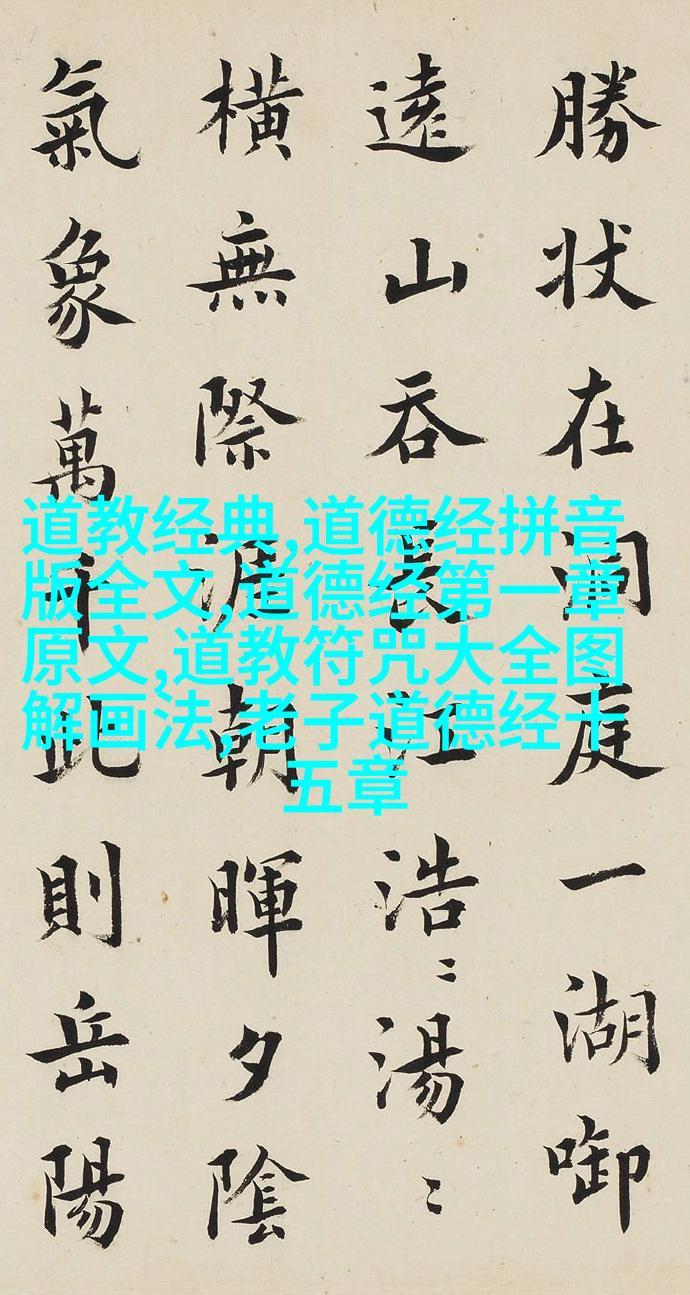 勝状在洞庭一湖啣
遠山吞長江浩〻湯〻
橫無際涯朝暉夕陰
氣象萬千此則岳陽
道教经典,道德经拼音
版全文,道德经第一章
原文,道教符咒大全图
解画法,老子道德经十
五章